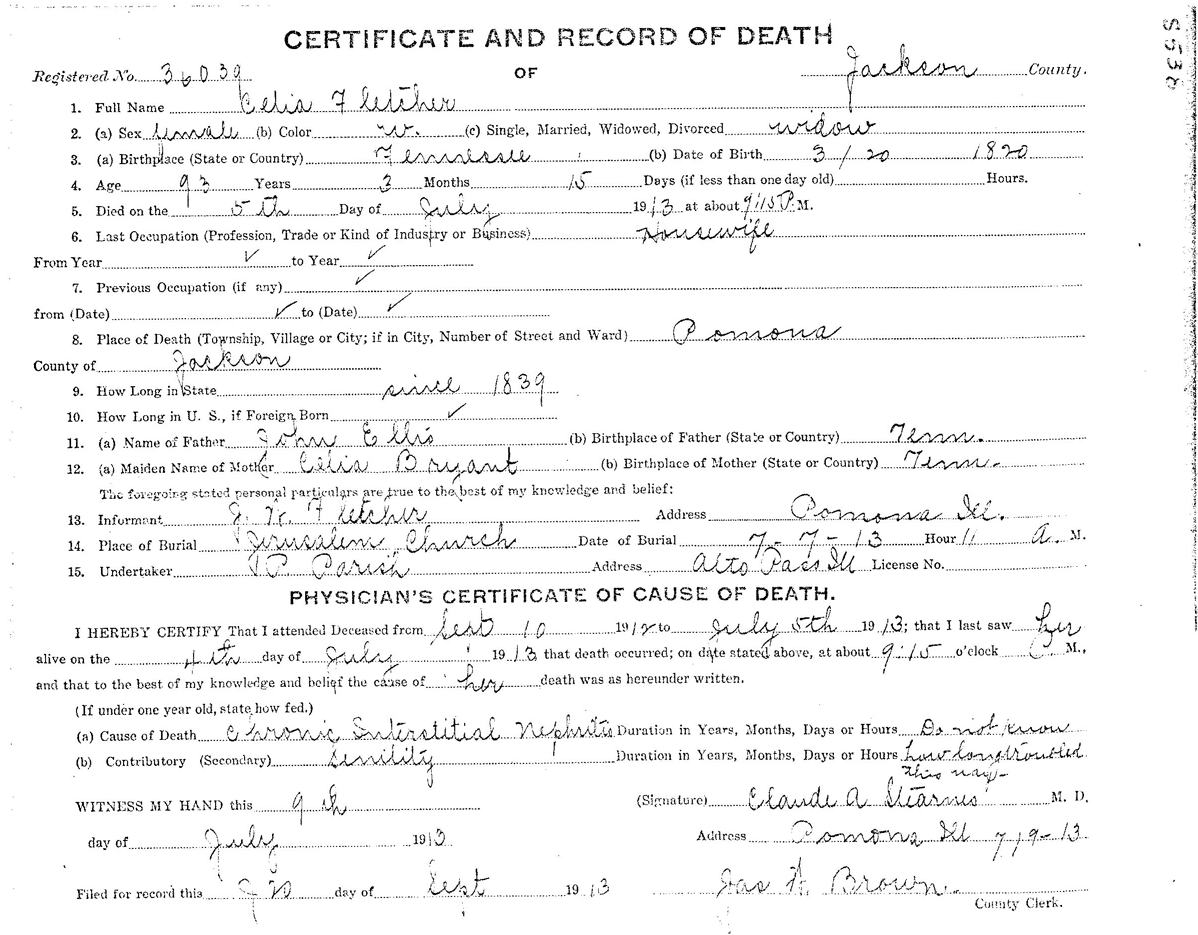 CERTIFICATE AND RECORD OF DEATH
Registered No. 36039 OF Jackson County.
5538
1. Full Name Celia Fletcher
2. (a) Sex female (b) Color w. (c) Single, Married, Widowed, Divorced widow
3. (a) Birthplace (State or Country) Tennessee (b) Date of Birth 3/20 1820
4. Age 93 Years 3 Months 15 Days (if less than one day old) Hours.
5. Died on the 5th Day of July 1913 at about 9:15 P. M.
6. Last Occupation (Profession, Trade or Kind of Industry or Business) Housewife
From Year ✓ to Year ✓
7. Previous Occupation (if any) ✓
from (Date) ✓ to (Date) ✓
8. Place of Death (Township, Village or City; if in City, Number of Street and Ward) Pomona
County of Jackson
9. How Long in State since 1839
10. How Long in U. S., if Foreign Born ✓
11. (a) Name of Father John Ellis (b) Birthplace of Father (State or Country) Tenn.
12. (a) Maiden Name of Mother Celia Bryant (b) Birthplace of Mother (State or Country) Tenn.
The foregoing stated personal particulars are true to the best of my knowledge and belief:
13. Informant J. W. Fletcher Address Pomona Ill.
14. Place of Burial Jerusalem Church Date of Burial 7-7-13 Hour 11 A. M.
15. Undertaker Parish Address Alto Pass Ill License No.
PHYSICIAN'S CERTIFICATE OF CAUSE OF DEATH.
I HEREBY CERTIFY That I attended Deceased from Sept 10 1912 to July 5th 1913; that I last saw her
alive on the 4th day of July 1913 that death occurred; on date stated above, at about 9:15 o'clock P. M.,
and that to the best of my knowledge and belief the cause of her death was as hereunder written.
(If under one year old, state how fed.)
(a) Cause of Death Chronic Interstitial Nephritis Duration in Years, Months, Days or Hours Do not know
(b) Contributory (Secondary) Senility Duration in Years, Months, Days or Hours how long troubled
this way-
WITNESS MY HAND this 9th (Signature) Claude A Stearns M. D.
day of July 1913 Address Pomona Ill 7/9-13
Filed for record this day of Sept 1913 Jas Brown
County Clerk.